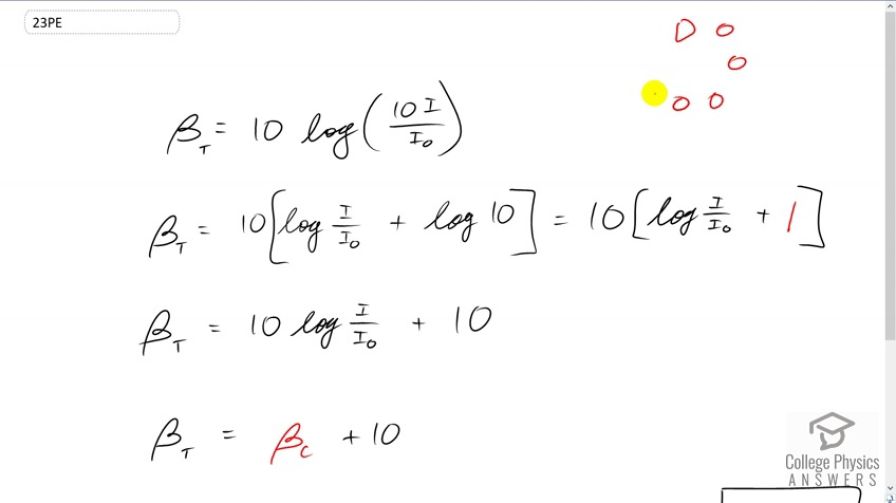 23PE
D O
O
O O
β_T = 10 log(10I/I₀)
β_T = 10[log I/I₀ + log 10] = 10[log I/I₀ + 1]
β_T = 10 log I/I₀ + 10
β_T = β_c + 10
College Physics
ANSWERS